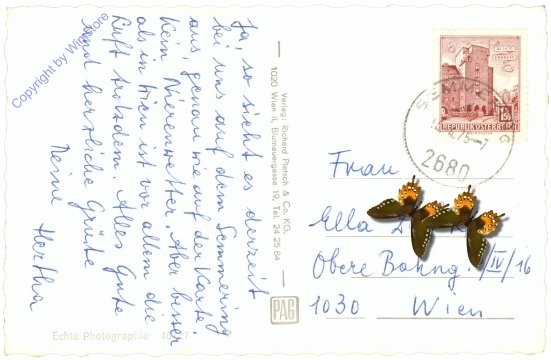 Ja, so sieht es derzeit
bei uns auf dem Semmering
aus, genau wie auf der Karte.
Kein Bierenwetter. Aber besser
als in Wien ist vor allem die
Luft trotzdem. Alles Gute
und herzliche Grüße
Deine Hertha
Echte Photographie
Verlag: Richard Pietsch & Co. KG,
1020 Wien II, Blumauergasse 19, Tel. 24 25 84
PAG
REPUBLIK ÖSTERREICH
1.50
SEMMERING
2680
Frau
Ella
Obere Bahng. /IV/16
1030 Wien
Copyright by Winstore